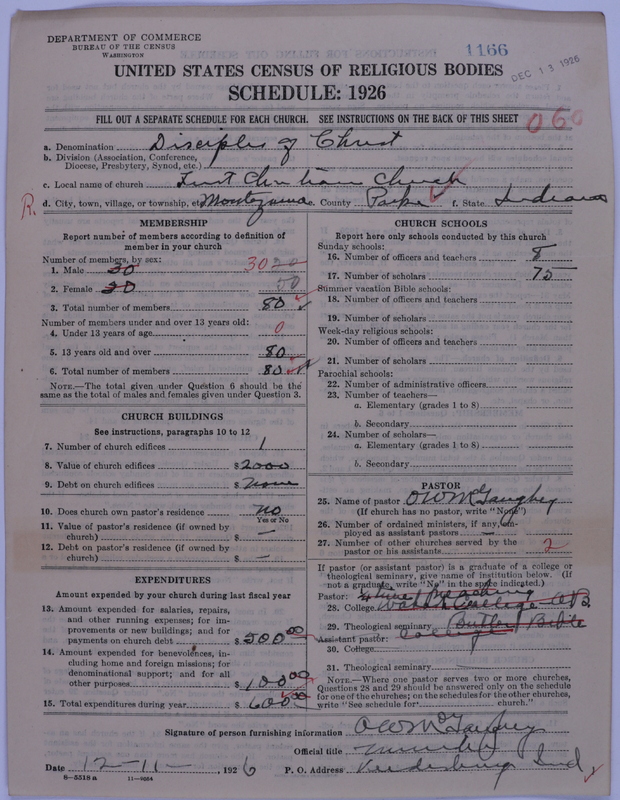 DEPARTMENT OF COMMERCE
BUREAU OF THE CENSUS
WASHINGTON
1166
DEC 13 1926
UNITED STATES CENSUS OF RELIGIOUS BODIES
SCHEDULE: 1926
FILL OUT A SEPARATE SCHEDULE FOR EACH CHURCH. SEE INSTRUCTIONS ON THE BACK OF THIS SHEET
060
a. Denomination Disciples of Christ
b. Division (Association, Conference, Diocese, Presbytery, Synod, etc.)
c. Local name of church First Christian Church
R.
d. City, town, village, or township, etc. Montezuma e. County Parke f. State Indiana
MEMBERSHIP
Report number of members according to definition of member in your church
Number of members, by sex:
1. Male 30 30 20
2. Female 20 50
3. Total number of members 80
Number of members under and over 13 years old:
4. Under 13 years of age 0
5. 13 years old and over 80
6. Total number of members 80
NOTE.—The total given under Question 6 should be the same as the total of males and females given under Question 3.
CHURCH BUILDINGS
See instructions, paragraphs 10 to 12
7. Number of church edifices 1
8. Value of church edifices $2000
9. Debt on church edifices $None
10. Does church own pastor's residence No
Yes or No
11. Value of pastor's residence (if owned by church) $ —
12. Debt on pastor's residence (if owned by church) $ —
EXPENDITURES
Amount expended by your church during last fiscal year
13. Amount expended for salaries, repairs, and other running expenses; for improvements or new buildings; and for payments on church debt $500.00
14. Amount expended for benevolences, including home and foreign missions; for denominational support; and for all other purposes $100.00
15. Total expenditures during year $600.00
CHURCH SCHOOLS
Report here only schools conducted by this church
Sunday schools:
16. Number of officers and teachers 8
17. Number of scholars 75
Summer vacation Bible schools:
18. Number of officers and teachers
19. Number of scholars
Week-day religious schools:
20. Number of officers and teachers
21. Number of scholars
Parochial schools:
22. Number of administrative officers
23. Number of teachers—
a. Elementary (grades 1 to 8)
b. Secondary
24. Number of scholars—
a. Elementary (grades 1 to 8)
b. Secondary
PASTOR
25. Name of pastor O W McGaughey
(If church has no pastor, write "None")
26. Number of ordained ministers, if any, employed as assistant pastors —
27. Number of other churches served by the pastor or his assistants 2
If pastor (or assistant pastor) is a graduate of a college or theological seminary, give name of institution below. (If not a graduate, write "No" in the space indicated.)
Pastor: Preaching
28. College Wabash College
29. Theological seminary Butler Bible
Assistant pastor: College
30. College
31. Theological seminary
NOTE.—Where one pastor serves two or more churches, Questions 28 and 29 should be answered only on the schedule for one of the churches; on the schedules for the other churches, write "See schedule for church."
Signature of person furnishing information O W McGaughey
Official title Minister
Date 12-11-, 1926 P. O. Address Veedersburg Ind
8-5518 a 11-9084